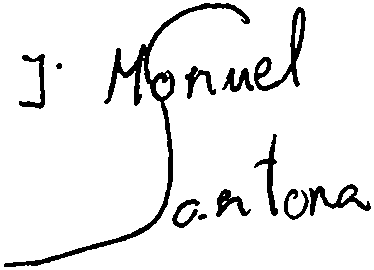 J. Manuel
Santona